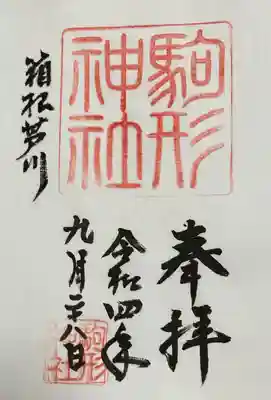 奉拝
駒形
神社
箱根芦川
令和四年
九月二十八日
駒形
神社